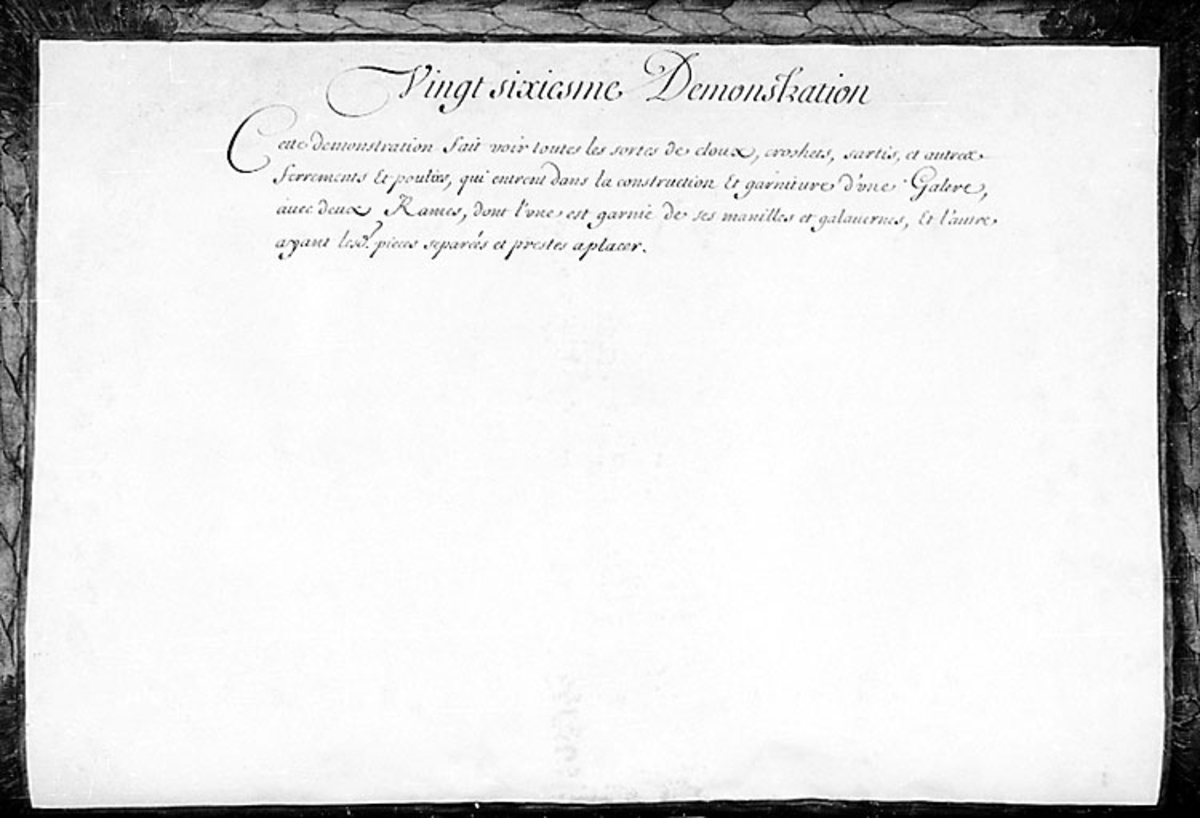 Vingt sixiesme Demonstration
Cette demonstration fait voir toutes les sortes de cloux, croshets, sartis, et autres
ferrements Et poulies, qui entrent dans la construction Et garniture d'une Galere,
avec deux Rames, dont l'une est garnie de ses manilles et galavernes, Et l'autre
ayant lesd. pieces separées et prestes a placer.